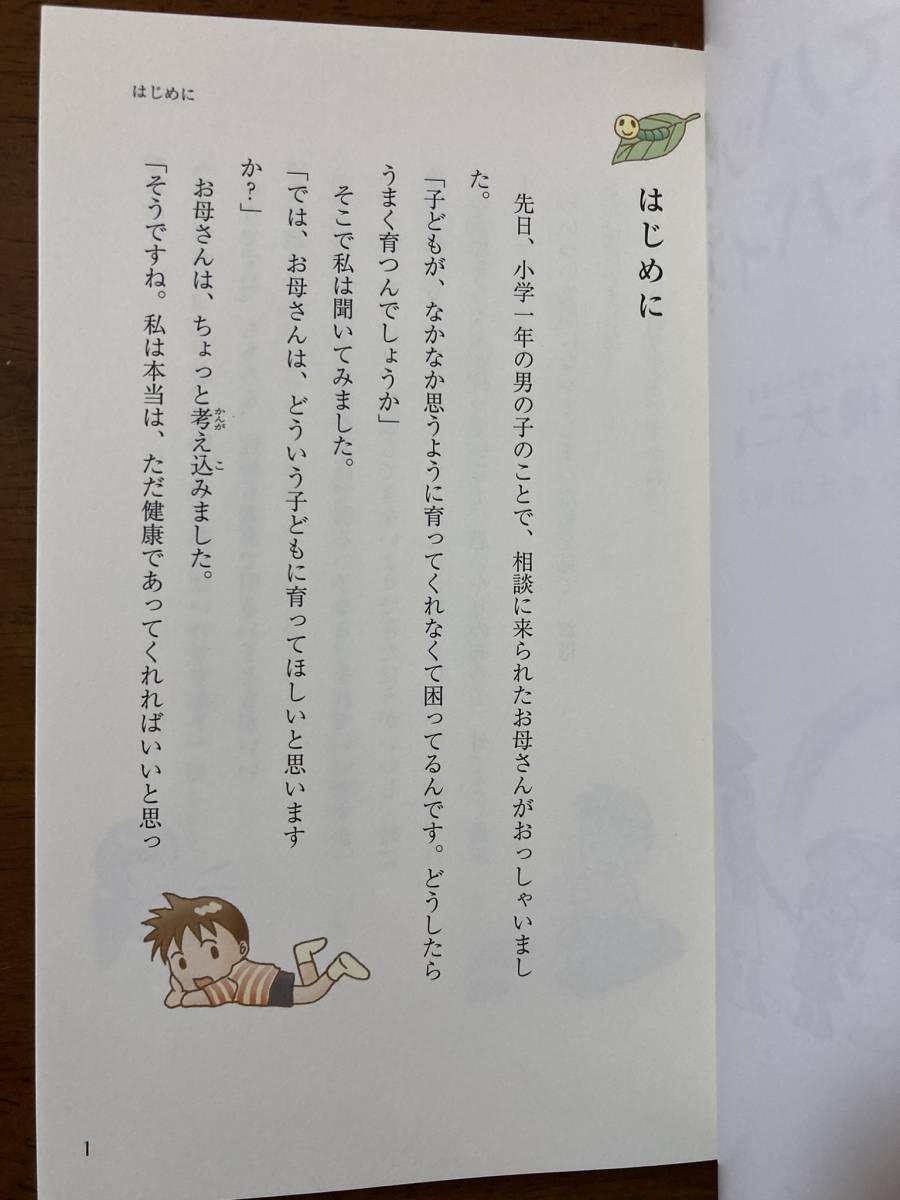 はじめに
はじめに
先日、小学一年の男の子のことで、相談に来られたお母さんがおっしゃいまし
た。
「子どもが、なかなか思うように育ってくれなくて困ってるんです。どうしたら
うまく育つんでしょうか」
そこで私は聞いてみました。
「では、お母さんは、どういう子どもに育ってほしいと思います
か?」
お母さんは、ちょっと考え込みました。
かんが
こ
「そうですね。私は本当は、ただ健康であってくれればいいと思っ
1